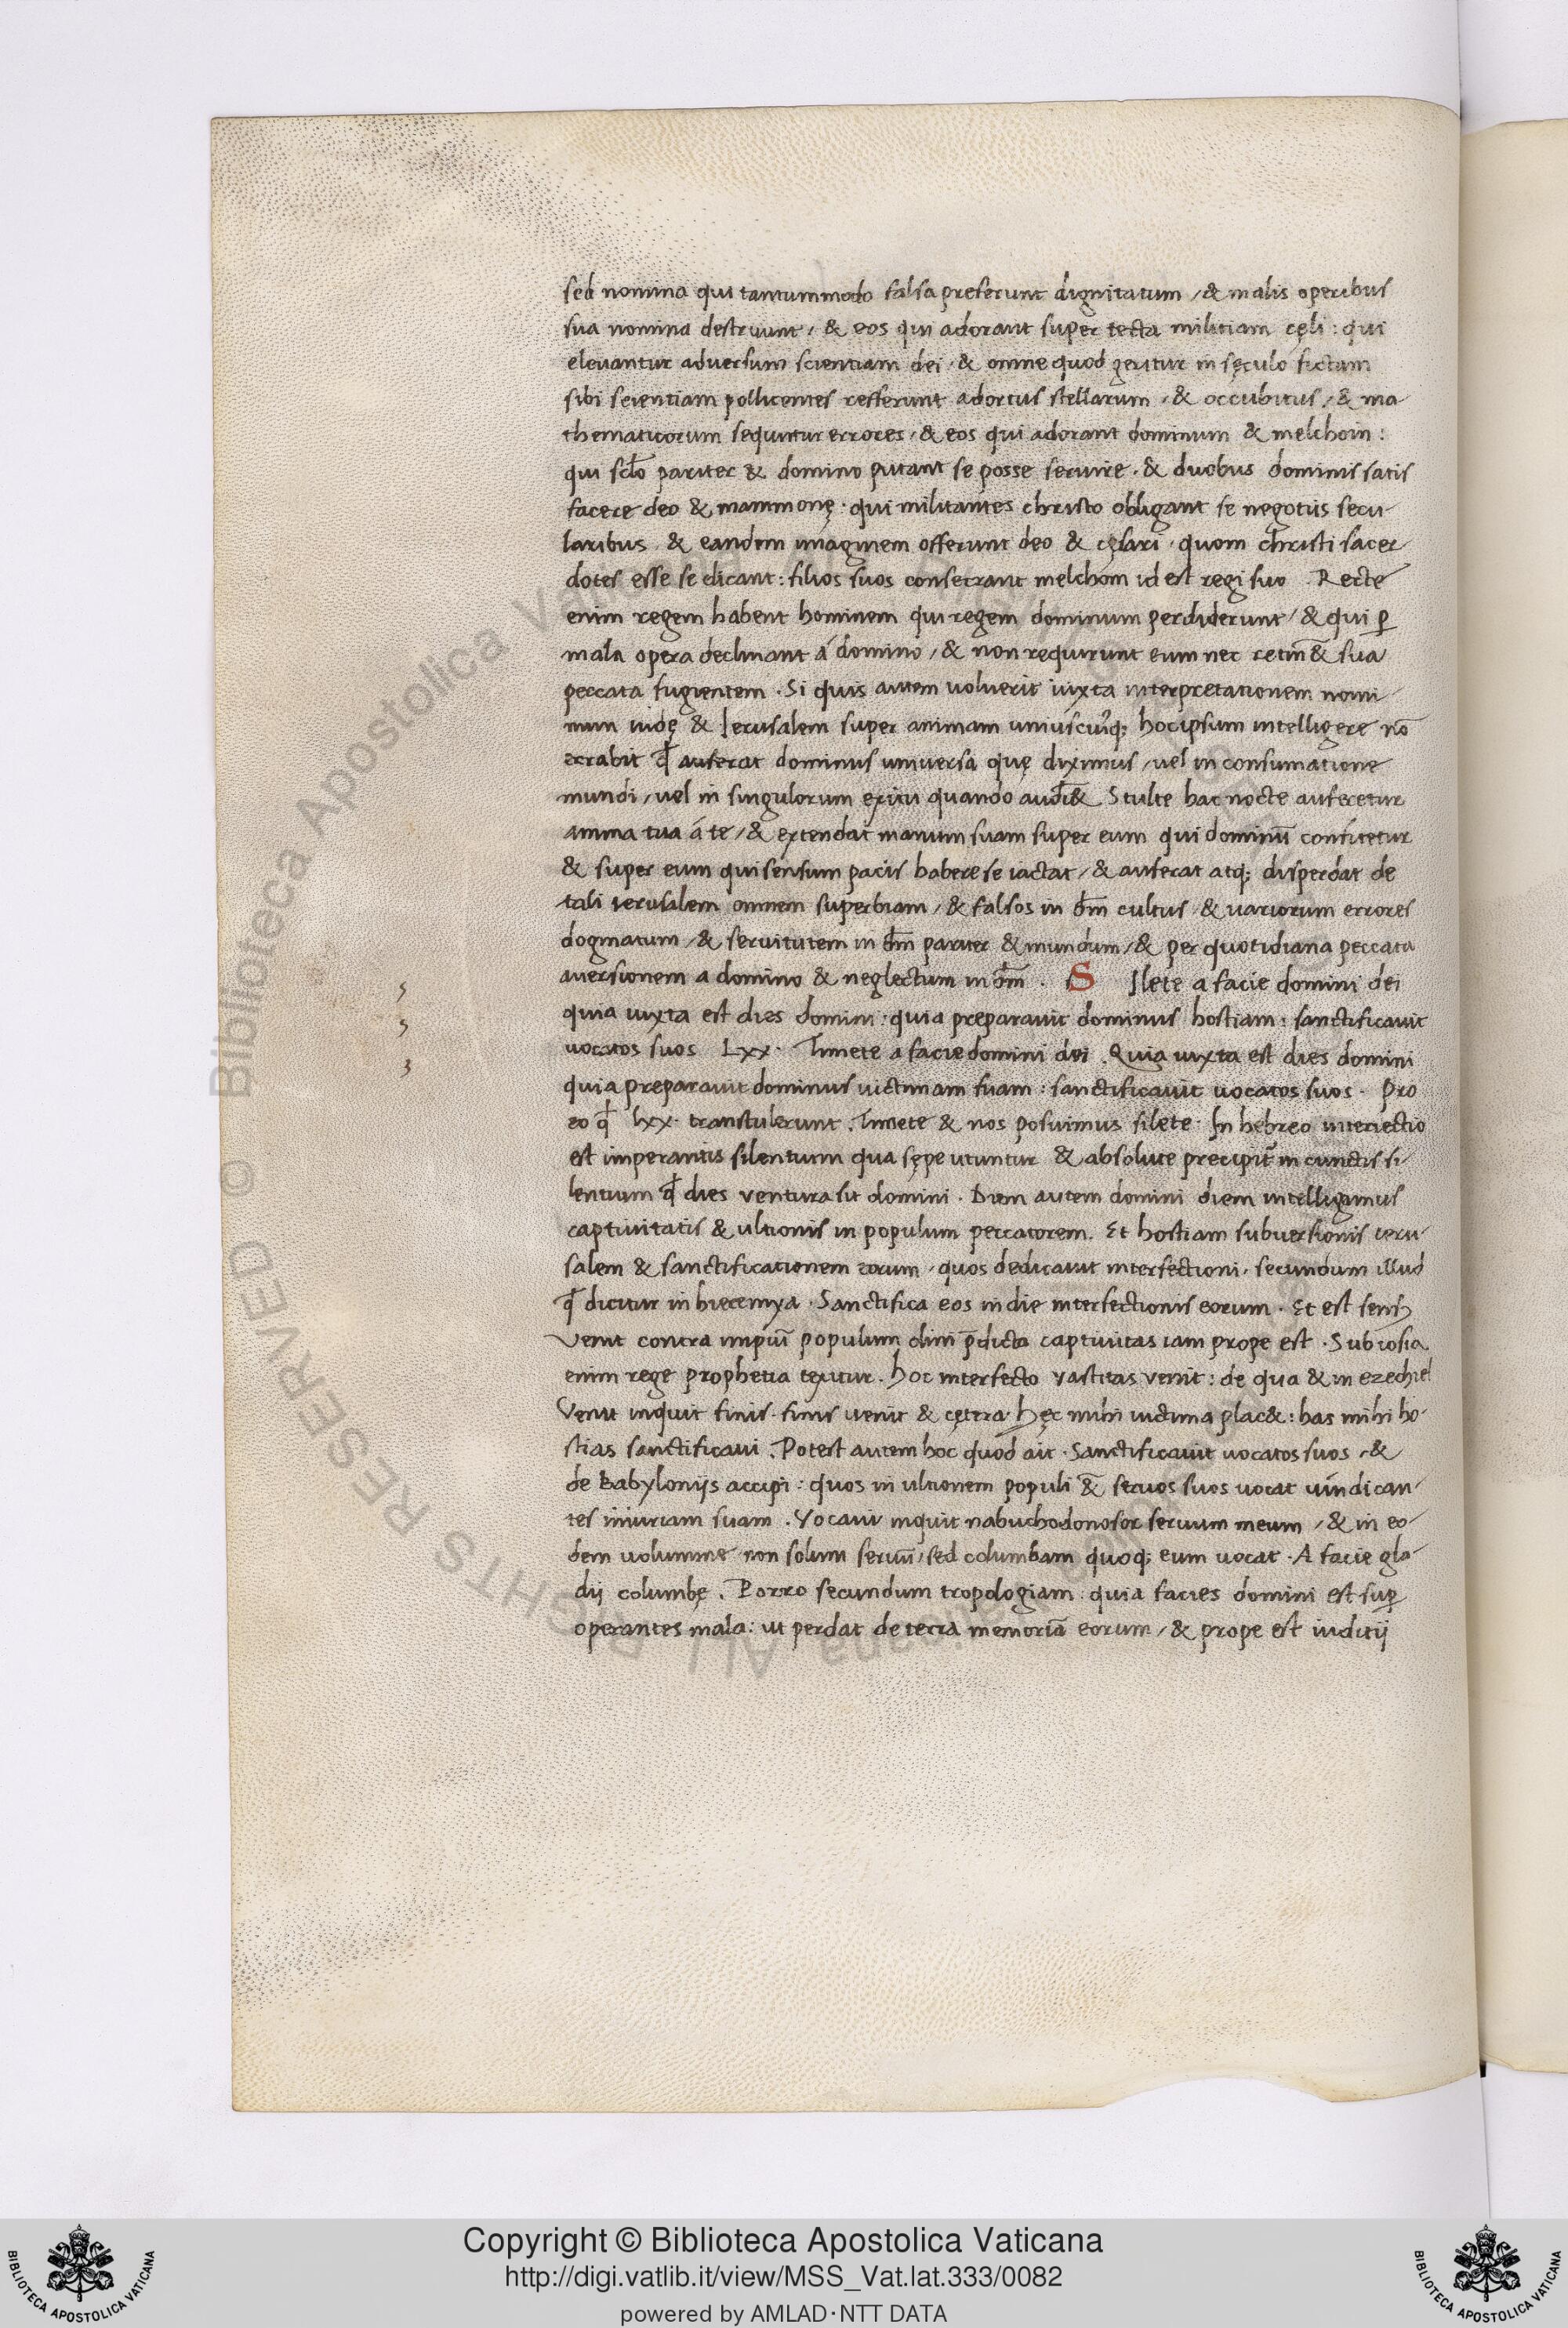 sed nomina qui tantummodo falsa preferunt dignitatum / & malis operibus
sua nomina destruunt / & eos qui adorant super tecta militiam cęli : qui
elevantur adversum scientiam dei / & omne quod geritur in sęculo fictam
sibi scientiam pollicentes refferunt ad ortus stellarum / & occubitus / & ma-
thematicorum sequntur errores / & eos qui adorant dominum & melchom :
qui sclo pariter & domino putant se posse servire . & duobus dominis satis
facere deo & mammonę . qui militantes christo obligant se negotiis secu-
laribus . & eandem imaginem offerunt deo & cęsari . quom christi sacer
dotes esse se dicant : filios suos consecrant melchom id est regi suo . Recte
enim regem habent hominem qui regem dominum perdiderunt / & qui ꝑ
mala opera declinant á domino / & non requirunt eum nec retin̄& sua
peccata fugientem . Si quis autem voluerit iuxta interpretationem nomi-
num iudę & Ierusalem super animam uniuscuiꝰq; hoc ipsum intelligere nō
errabit ꝙ auferat dominus universa quę diximus / vel in consumatione
mundi / vel in singulorum exitu quando audi& Stulte hac nocte auferetur
anima tua á te / & extendat manum suam super eum qui dominū confitetur
& super eum qui sensum pacis habere se iactat / & auferat atq; disperdat de
tali ierusalem omnem superbiam / & falsos in dm̄ cultus / & variorum errores
dogmatum / & servitutem in dm̄ pariter & mundum / & per quotidiana peccata
aversionem a domino & neglectum in dm̄ . S Ilete a facie domini dei
quia iuxta est dies domini : quia preparavit dominus hostiam : sanctificavit
vocatos suos Lxx . Timete a facie domini dei . Quia iuxta est dies domini
quia preparavit dominus victimam suam : sanctificavit vocatos suos . Pro
eo ꝙ lxx . transtulerunt . Timete & nos posuimus silete . In hebreo interiectio
est imperantis silentium qua sępe utuntur & absolute precipit̄ in cunctis si-
lentium ꝙ dies ventura sit domini . Diem autem domini diem intelligamus
captivitatis & ultionis in populum peccatorem . Et hostiam subversionis ieru-
salem & sanctificationem eorum . quos dedicavit interfectioni . secundum illud
ꝙ dicitur in hieremya . Sanctifica eos in die interfectionis eorum . Et est sensꝰ
Venit contra impiū populum olim p̄dicta captivitas iam prope est . Sub iosia
enim rege prophetia texitur . hoc interfecto vastitas venit : de qua & in ezechiel
Venit inquit finis . finis venit & cętera . hęc mihi victima plac& : has mihi ho-
stias sanctificavi . Potest autem hoc quod ait . Sanctificavit vocatos suos / &
de Babylonijs accipi : quos in ultionem populi & servos suos vocat vindican-
tes iniuriam suam . Vocavi inquit nabuchodonosor servum meum / & in eo-
dem volumine non solum servū / sed columbam quoq; eum vocat . A facie gla-
dij columbę . Porro secundum tropologiam quia facies domini est suꝑ
operantes mala : ut perdat de terra memoriā eorum / & prope est iuditij
Copyright © Biblioteca Apostolica Vaticana
http://digi.vatlib.it/view/MSS_Vat.lat.333/0082
powered by AMLAD·NTT DATA